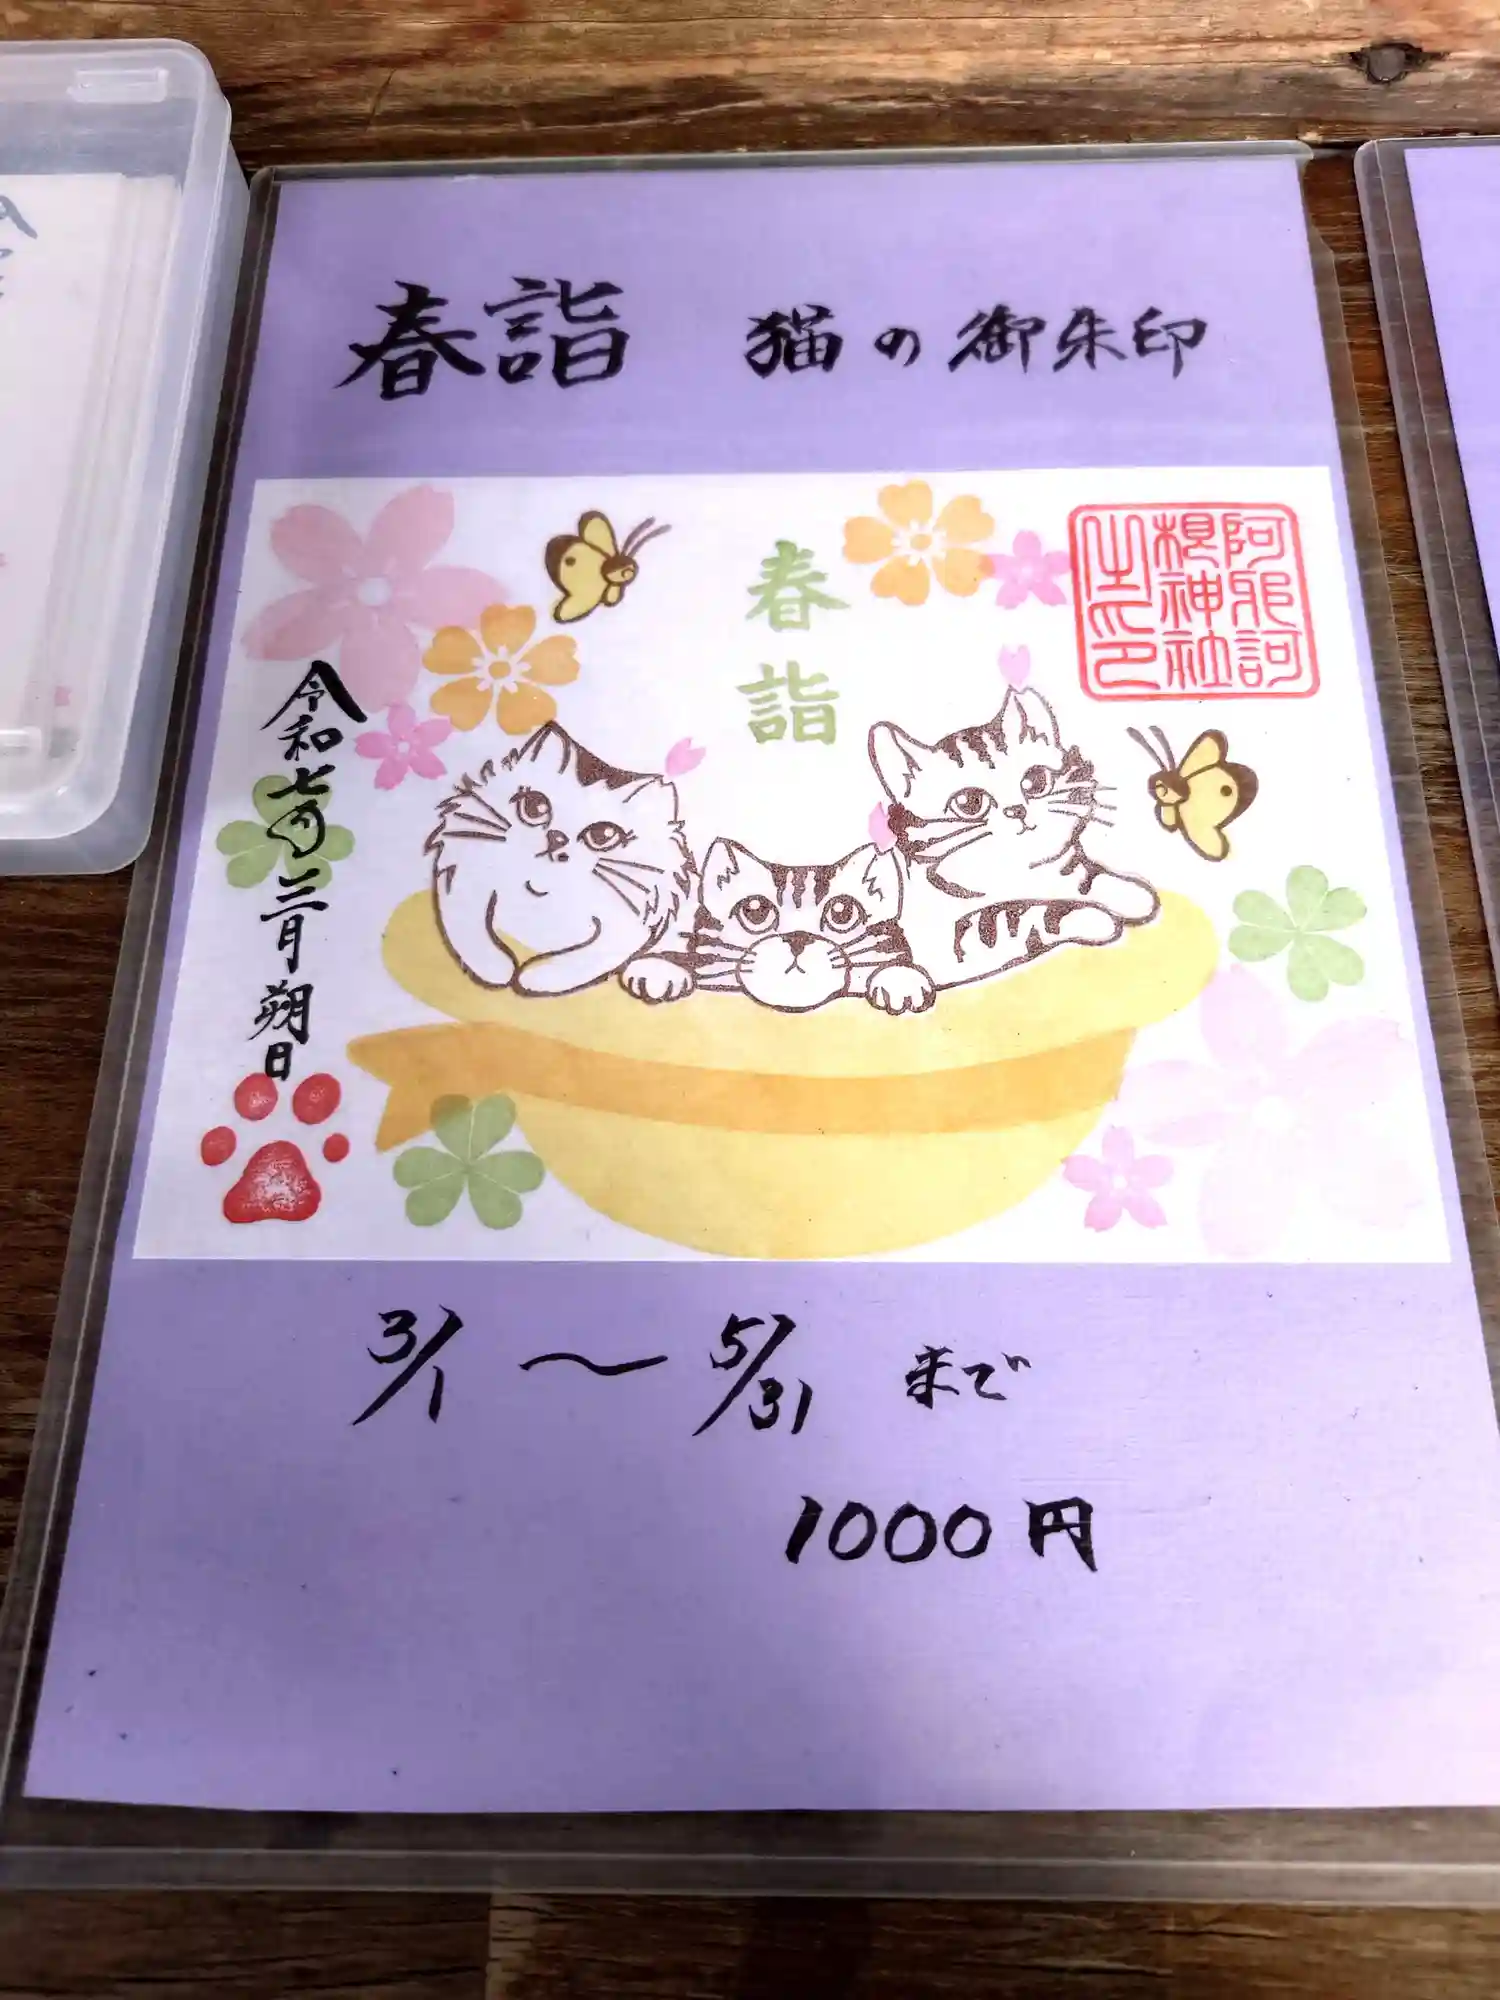 春詣 猫の御朱印
春詣
阿邪訶
根神社
之印
令和七年三月朔日
3/1 〜 5/31 まで
1000円